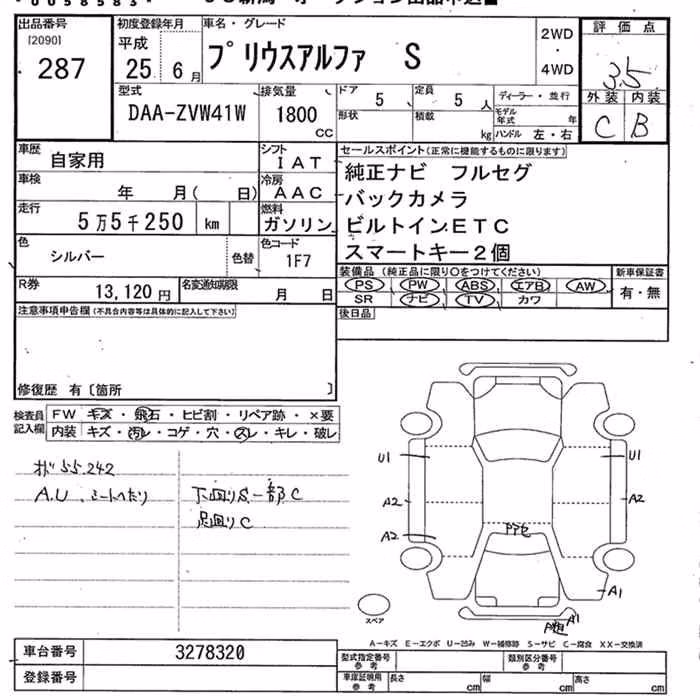 出品番号
[2090]
287
初度登録年月
平成
25 6月
車名・グレード
プリウスアルファ S
2WD
・
4WD
評価点
3.5
外装 内装
C B
型式
DAA-ZVW41W
排気量
1800
CC
ドア
5
定員
5人
ディーラー・並行
形状
積載
kg
モデル年式 年
ハンドル 左・右
車歴
自家用
シフト
IAT
車検
年 月( 日)
冷房
AAC
走行
5万5千250 km
燃料
ガソリン
色
シルバー
色替
色コード
1F7
R券
13,120円
名変通知期限
月 日
セールスポイント(正常に機能するものに限ります)
純正ナビ フルセグ
バックカメラ
ビルトインETC
スマートキー2個
装備品(純正品に限り○をつけてください)
PS PW ABS エアB AW
SR ナビ TV カワ
新車保証書
有・無
後日品
注意事項申告欄(不具合内容等は具体的に記入して下さい)
修復歴 有〔箇所 〕
検査員
記入欄
FW キズ・飛石・ヒビ割・リペア跡・×要
内装 キズ・汚レ・コゲ・穴・スレ・キレ・破レ
55.242
A.U
下回りS一部C
足回りC
U1 U1
A2 A2
A2
A1
A1
スペア
A-キズ E-エクボ U-凹み W-補修跡 S-サビ C-腐食 XX-交換済
車台番号 3278320
登録番号
型式指定番号
参考
類別区分番号
参考
車庫証明用
参考
長さ cm 幅 cm 高さ cm